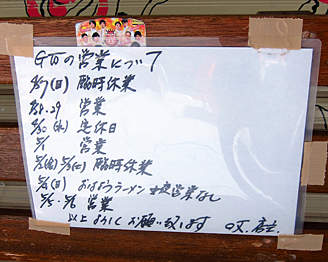 GWの営業について
4/27(日) 臨時休業
4/28.29 営業
4/30(水) 定休日
5/1 営業
5/2(金) 5/3(土) 臨時休業
5/4(日) おはようラーメン 営業なし
5/5・5/6 営業
以上 よろしくお願い致します 店主